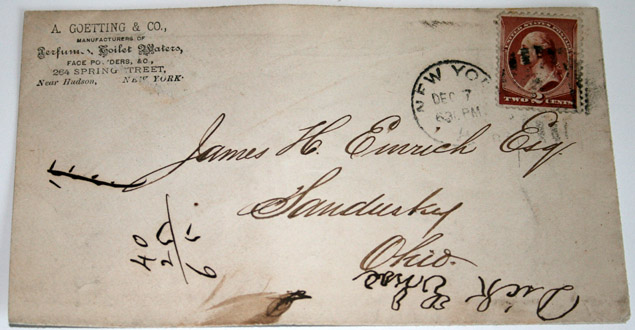 A. GOETTING & CO.,
MANUFACTURERS OF
Perfumes, Toilet Waters,
FACE POWDERS, &C.,
264 SPRING STREET,
Near Hudson, NEW YORK.
NEW YO
DEC 7
630PM
TWO 2 CENTS
James H. Emrich Esq.
Sandusky
Ohio.
40
25
65